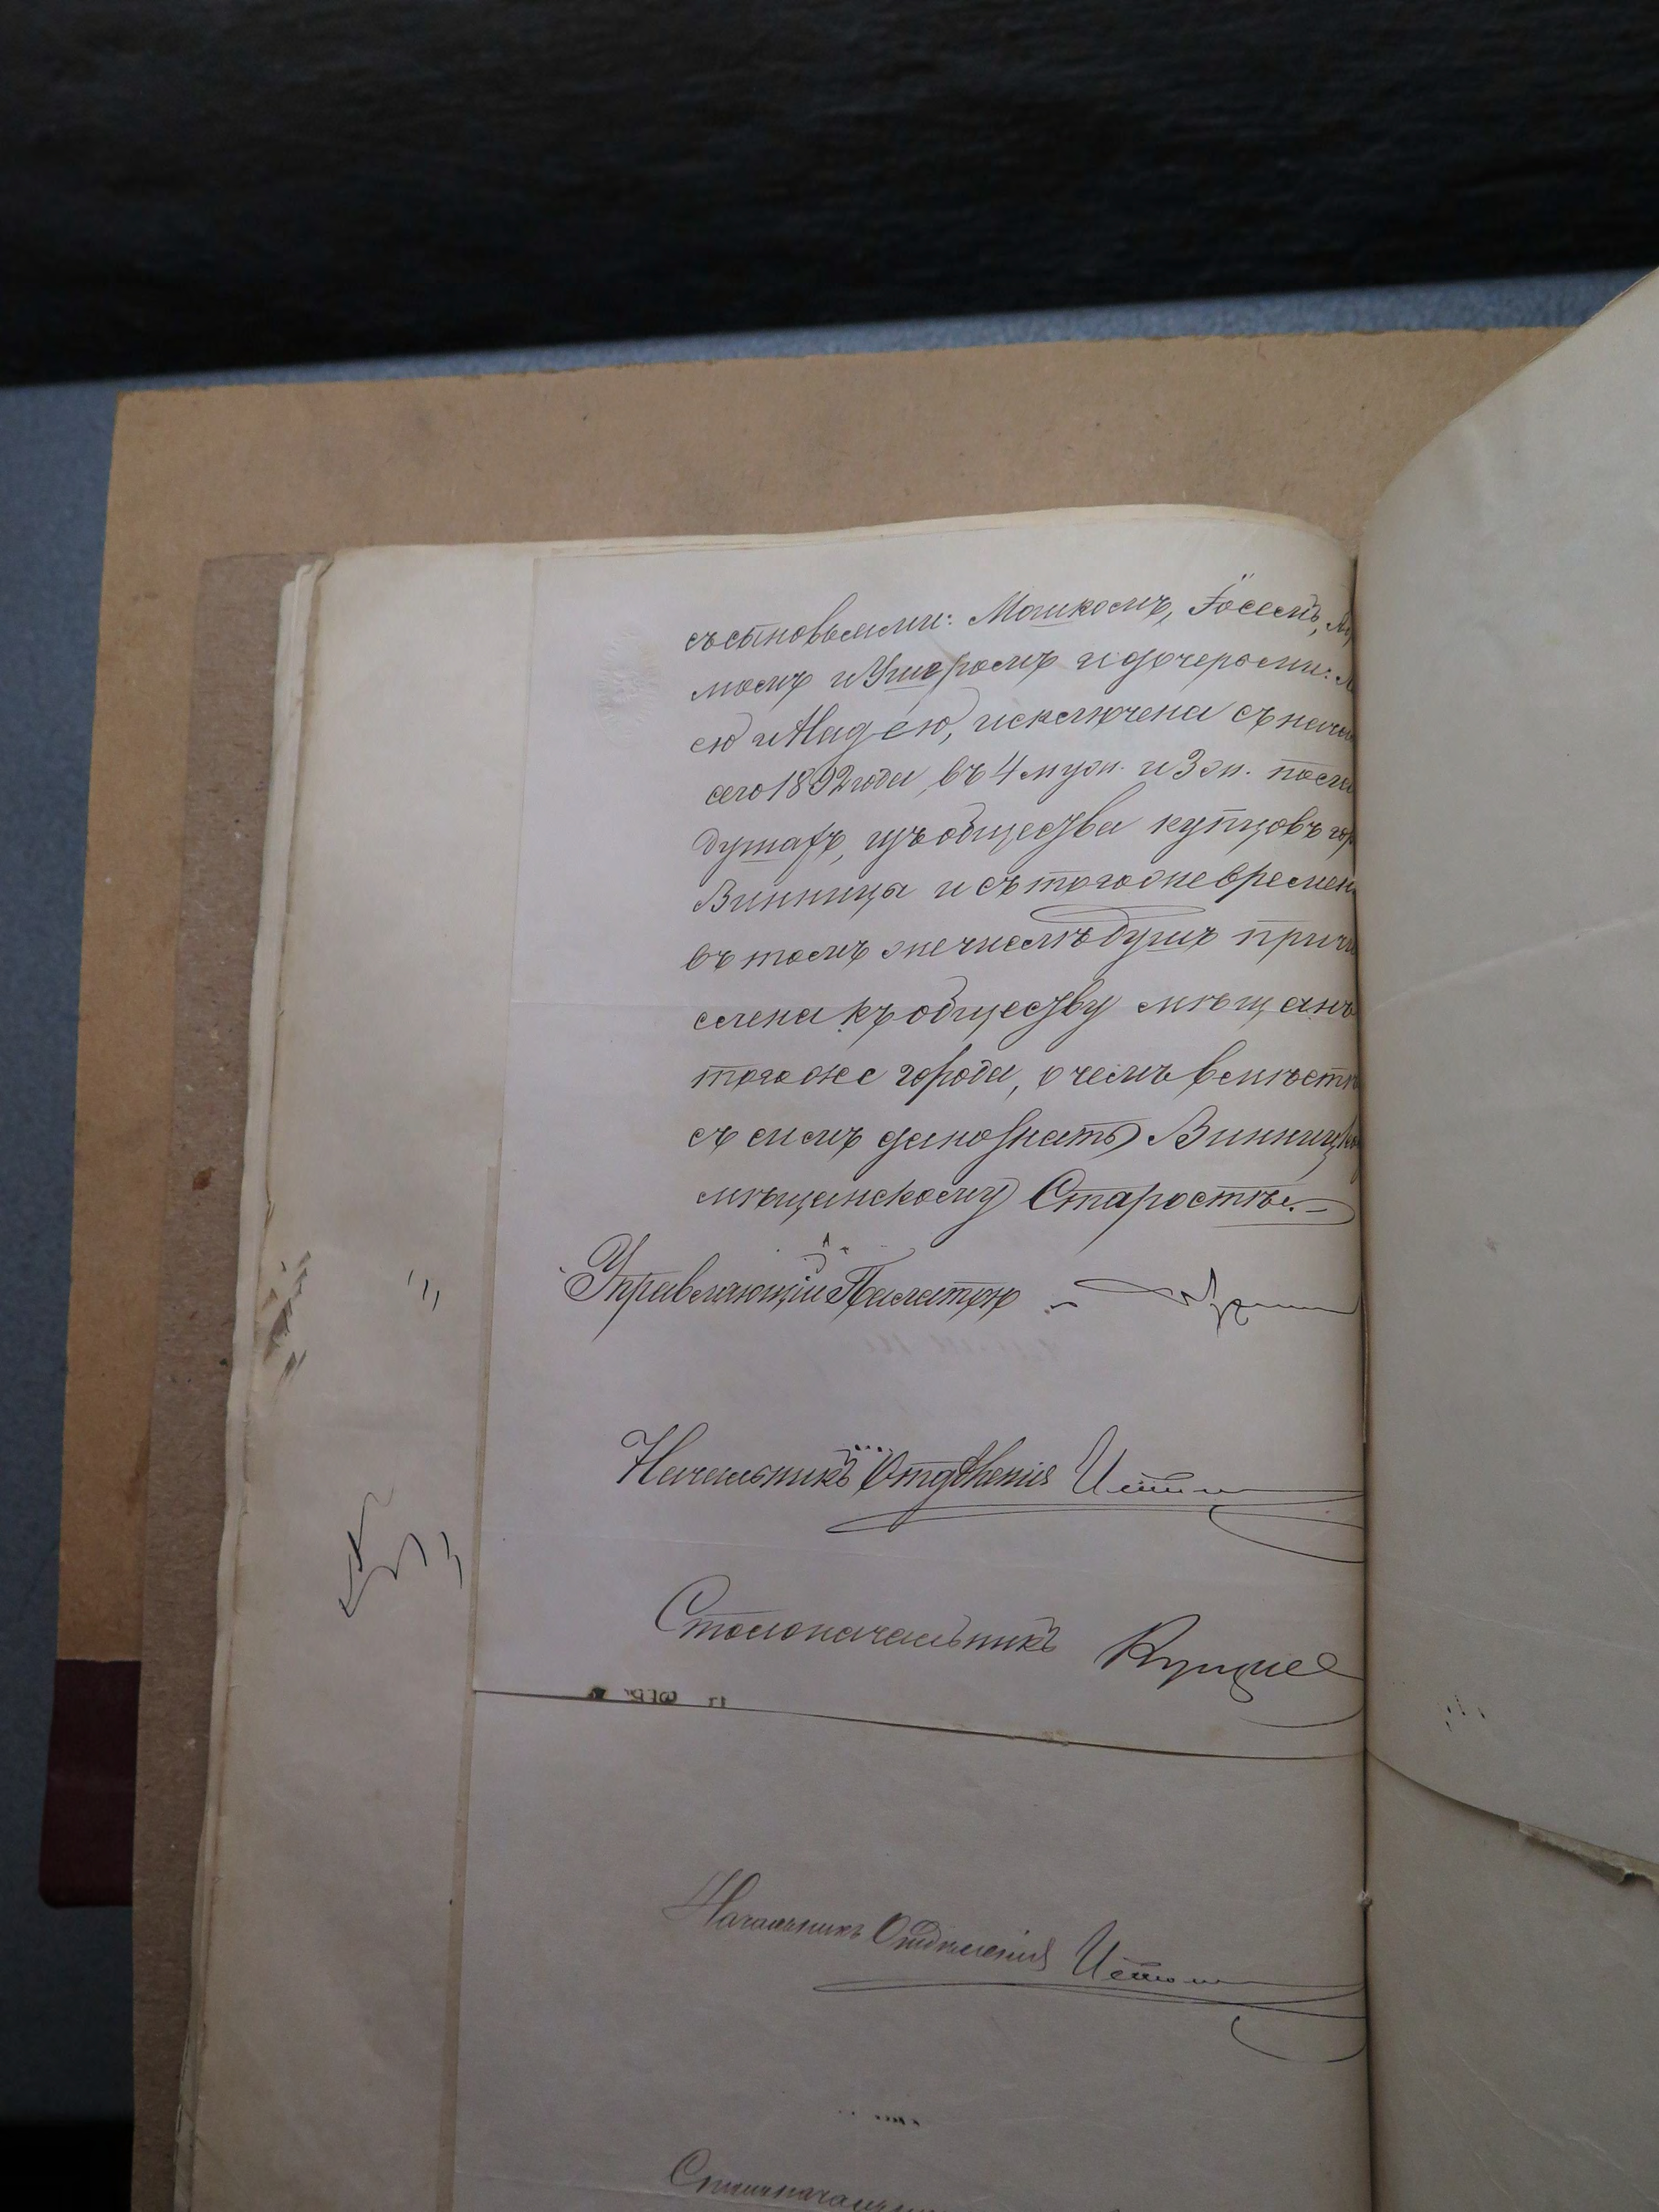 съ сыновьями: Мошкомъ, Іосемъ,
момъ и Ушеромъ и дочерьми:
ею и Надею, исключена съ нача
сего 1892 года въ 4 муж. и 3 ж.
душахъ, изъ общества купцовъ гор
Винница и съ того же времен
въ томъ же числѣ душъ причи
слена къ обществу мѣщанъ
того же города, о чемъ вмѣстѣ
съ симъ дано знать Винницко
мѣщанскому Старостѣ.
Управляющій Палатою
Начальникъ Отдѣленія
Столоначальникъ
Начальникъ Отдѣленія
Столоначальникъ